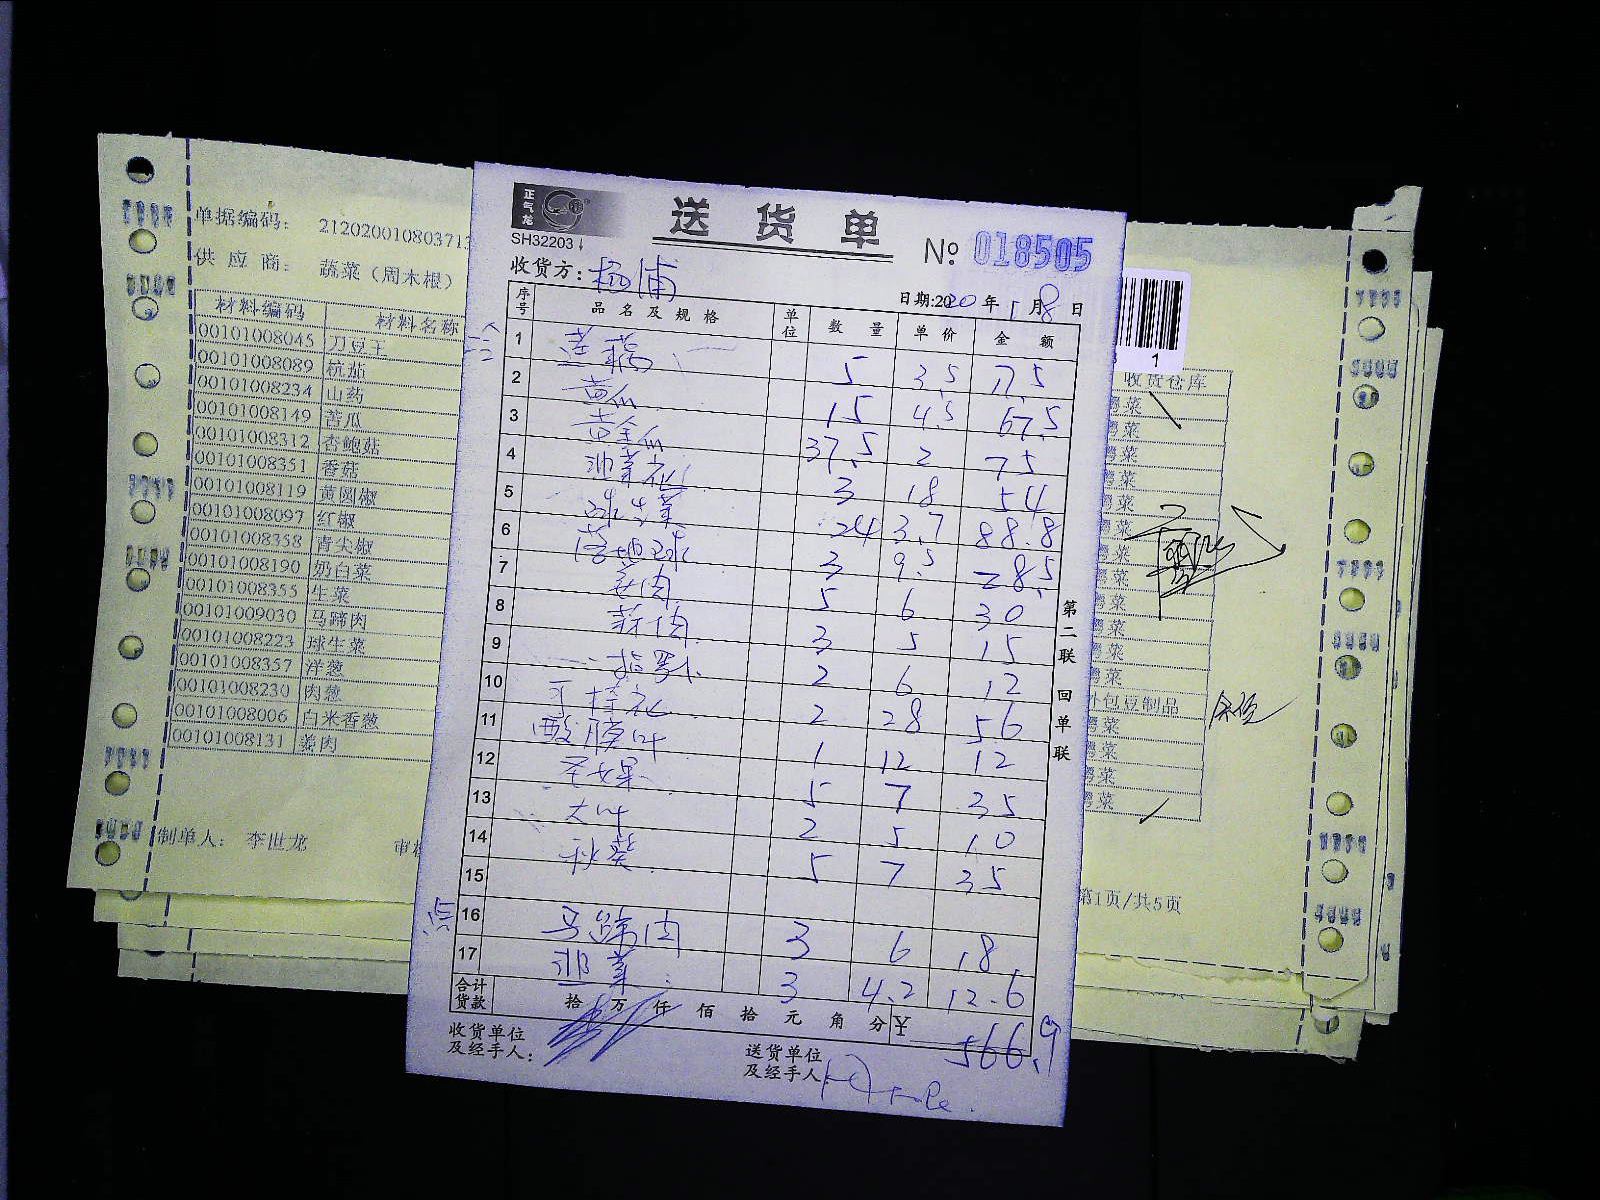 单据编码: 212020010803713
供应商: 蔬菜（周木根）
材料编码 材料名称
00101008045 刀豆王
00101008089 杭茄
00101008234 山药
00101008149 苦瓜
00101008312 杏鲍菇
00101008351 香菇
00101008119 黄圆椒
00101008097 红椒
00101008358 青尖椒
00101008190 奶白菜
00101008355 生菜
00101009030 马蹄肉
00101008223 球生菜
00101008357 洋葱
00101008230 肉葱
00101008006 白米香葱
00101008131 姜肉
制单人: 李世龙
正气龙
SH32203
送货单
№ 018505
收货方: 杨浦
日期:2020年1月8日
序号 品名及规格 单位 数量 单价 金额
1 莲藕 5 3.5 17.5
2 黄瓜 15 4.5 67.5
3 黄金瓜 37.5 2 75
4 韭菜花 3 18 54
5 球生菜 24 3.7 88.8
6 3 9.5 28.5
7 姜肉 5 6 30
8 蒜肉 3 5 15
9 2 6 12
10 2 28 56
11 酸膜叶 1 12 12
12 圣女果 5 7 35
13 大叶 2 5 10
14 秋葵 5 7 35
15
16 马蹄肉 3 6 18
17 韭菜 3 4.2 12.6
合计货款 拾 万 仟 佰 拾 元 角 分 ¥ 566.9
收货单位及经手人:
送货单位及经手人:
第二联 回单联
1
收货仓库
外包豆制品
第1页/共5页